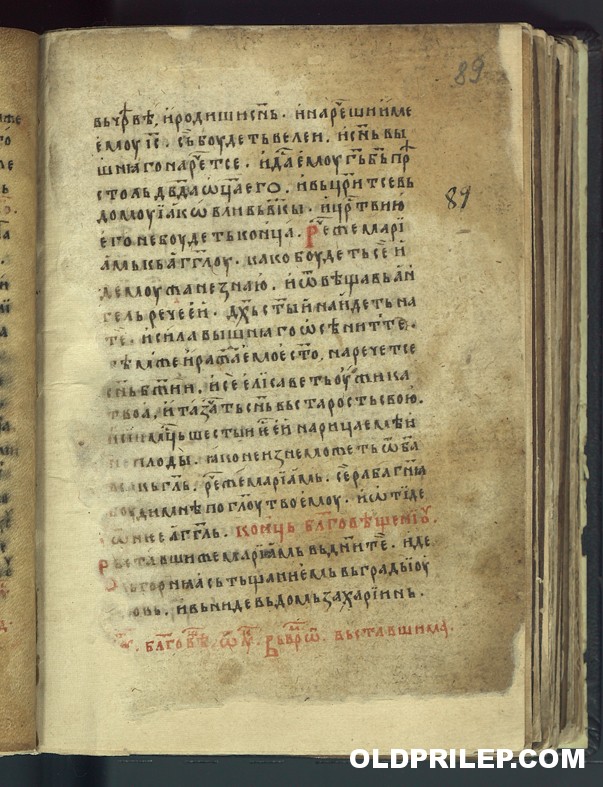 89
89
вьчрⷭ҇вѣ, и҆родишисн҃ь. и҆наре҇шии҆ме
е҆моуі҆с҃. съ҆боудетьвелеи. и҆сн҃ьвы
шнꙗгонаре҇тсе. и҆да҇е҆моугь҃бь҃прⷭ҇
столь дв҃да ѡц҃а его. и҆вьцр҃итсевь
домоуі҆аковли вьвѣ҇кы. и҆цр҃твию
е҆гонебоудетьконца. Ре҇жемарі
а҆мькьа҆гг҃лоу. какобоудетьсе҆ и҆
демоужанезнаю. и҆ѿвѣщавьа҆н
гельречее҆и. дх҃ьст҃ыи наи҆детьна
те҆. и҆силавышнꙗгоѡ҆сѣнитте.
тѣмжеи҆ражⷣаемоесто҃, наречетсе
сн҃ьбж҃ии, и҆се҆е҆лисаветьоу҆жика
твоа, и҆тазач҇тьсн҃ьвьстаростьсвою.
мц҃ьшестыи҆ е҇е҆и нарицаемѣи
плоды. ꙗконеи҆знеможетьѿба҃
вьгл҃ь. ре҇жемариа҆мь. се҆рабагн҃ꙗ
боудимнѣпогл҃оутвоемоу. и҆ѿи҇де
ѿнⷻеа҆гг҃ль. конць бл҃говѣщению҆.
Вьставшижемариа҆мьвьднⷻите҆. иде
вьгорнꙗасьтщаниемьвьградьі҆оу
довь. и҆вьнидевьдомьзахариинь.
бл҃говѣ҇. ѿлⷦ҇. Вьврⷨ҇ѡ. вьставшима.
OLDPRILEP.COM